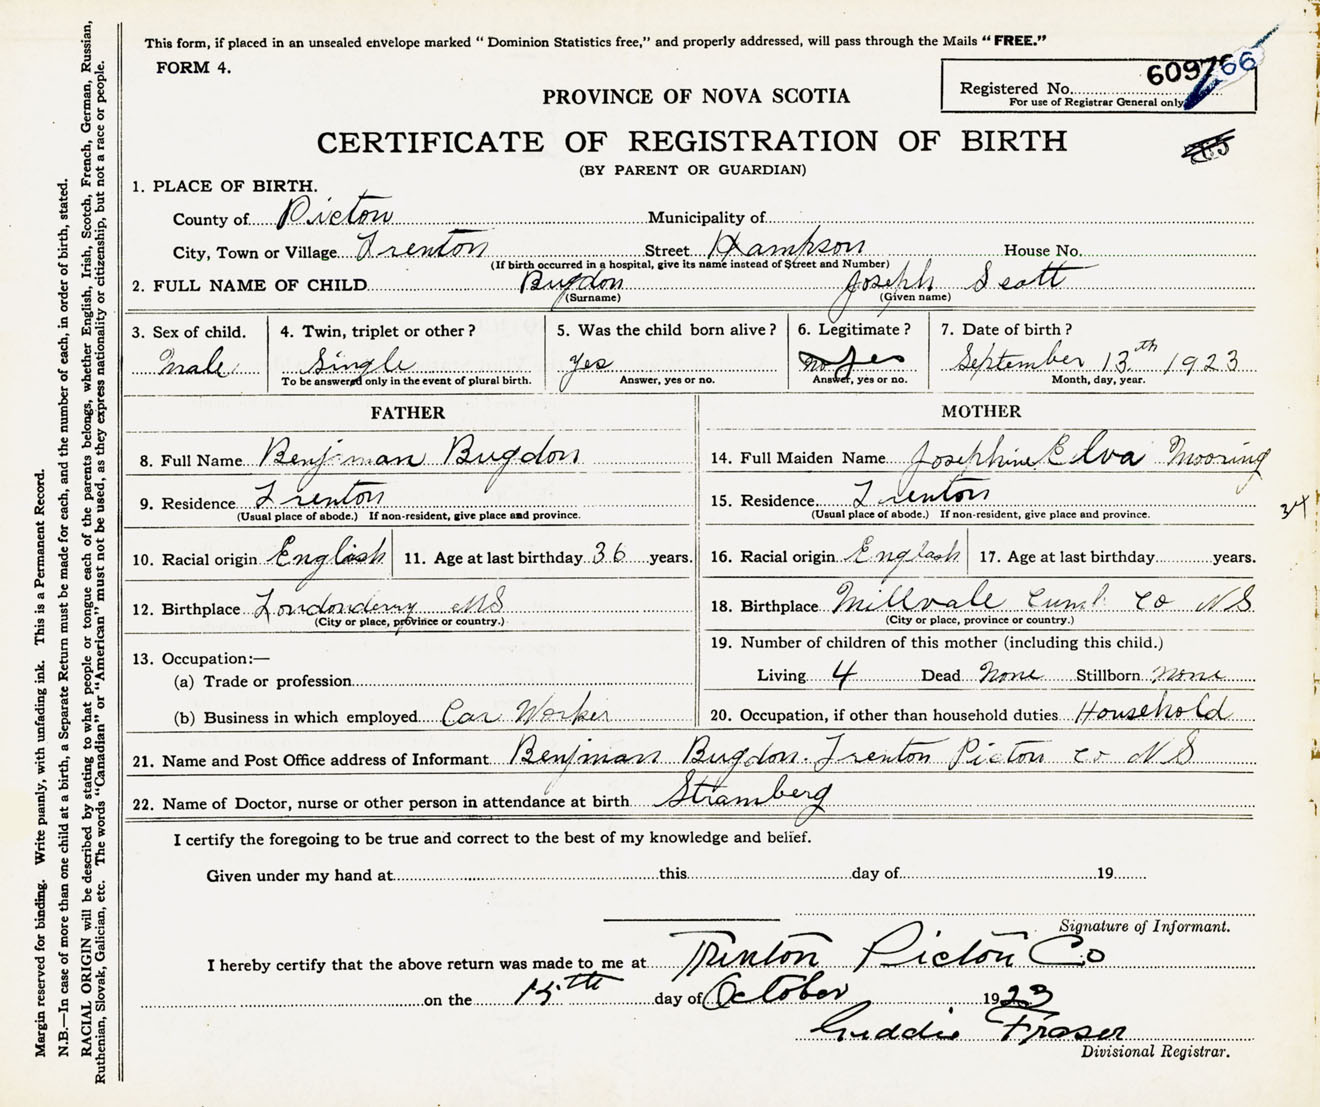 This form, if placed in an unsealed envelope marked “ Dominion Statistics free,” and properly addressed, will pass through the Mails “ FREE.”
FORM 4.
609766
Registered No.
For use of Registrar General only
PROVINCE OF NOVA SCOTIA
CERTIFICATE OF REGISTRATION OF BIRTH
(BY PARENT OR GUARDIAN)
1. PLACE OF BIRTH.
County of Picton Municipality of
City, Town or Village Trenton Street Hampson House No.
(If birth occurred in a hospital, give its name instead of Street and Number)
2. FULL NAME OF CHILD Bugdon Joseph Scott
(Surname) (Given name)
3. Sex of child. 4. Twin, triplet or other ? 5. Was the child born alive ? 6. Legitimate ? 7. Date of birth ?
Male Single yes no yes September 13th 1923
To be answered only in the event of plural birth. Answer, yes or no. Answer, yes or no. Month, day, year.
FATHER MOTHER
8. Full Name Benjman Bugdon 14. Full Maiden Name Josephine Elva Mooring
9. Residence Trenton 15. Residence Trenton
(Usual place of abode.) If non-resident, give place and province. (Usual place of abode.) If non-resident, give place and province.
34
10. Racial origin English 11. Age at last birthday 36 years. 16. Racial origin English 17. Age at last birthday years.
12. Birthplace Londonderry NS 18. Birthplace Millvale Cumb Co NS
(City or place, province or country.) (City or place, province or country.)
19. Number of children of this mother (including this child.)
13. Occupation:—
(a) Trade or profession Living 4 Dead None Stillborn None
(b) Business in which employed Car Worker 20. Occupation, if other than household duties Household
21. Name and Post Office address of Informant Benjman Bugdon. Trenton Picton Co NS
22. Name of Doctor, nurse or other person in attendance at birth Stramberg
I certify the foregoing to be true and correct to the best of my knowledge and belief.
Given under my hand at this day of 19
Signature of Informant.
I hereby certify that the above return was made to me at Trenton Picton Co
on the 15th day of October 1923
Fraser
Divisional Registrar.
Margin reserved for binding. Write plainly, with unfading ink. This is a Permanent Record.
N.B.—In case of more than one child at a birth, a Separate Return must be made for each, and the number of each, in order of birth, stated.
RACIAL ORIGIN will be described by stating to what people or tongue each of the parents belongs, whether English, Irish, Scotch, French, German, Russian,
Ruthenian, Slovak, Galician, etc. The words “Canadian” or “American” must not be used, as they express nationality or citizenship, but not a race or people.